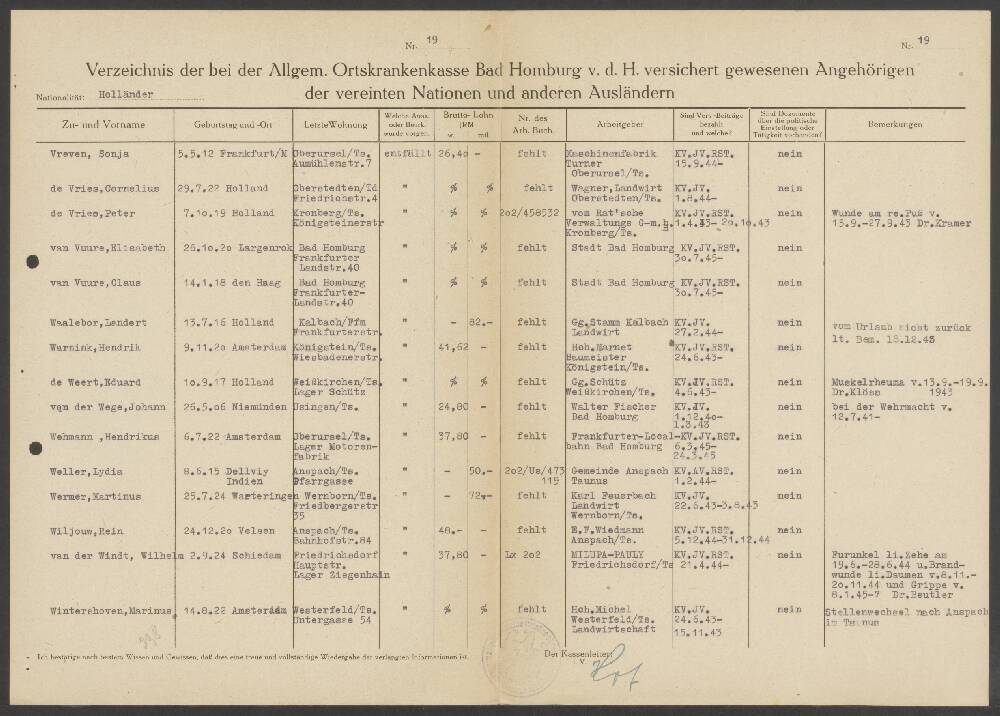 Nr. 19
Nr. 19
Verzeichnis der bei der Allgem. Ortskrankenkasse Bad Homburg v. d. H. versichert gewesenen Angehörigen
Nationalität: Holländer
der vereinten Nationen und anderen Ausländern
Zu- und Vorname
Geburtstag und -Ort
Letzte Wohnung
Welche Ausw. oder Beurk. wurde vorgel.
Brutto-Lohn (RM w. mtl.
Nr. des Arb. Buch.
Arbeitgeber
Sind Vers.-Beiträge bezahlt und welche?
Sind Dokumente über die politische Einstellung oder Tätigkeit vorhanden?
Bemerkungen
Vreven, Sonja 5.5.12 Frankfurt/M Oberursel/Ts. entfällt 26,40 - fehlt Maschinenfabrik KV.JV.RST. nein
Aumühlenstr.7 Turner 15.9.44-
Oberursel/Ts.
de Vries,Cornelius 29.7.22 Holland Oberstedten/Td " % % fehlt Wagner,Landwirt KV.JV. nein
Friedrichstr.4 Oberstedten/Ts. 1.8.44-
de Vries,Peter 7.10.19 Holland Kronberg/Ts. " % % 202/458532 vom Rat'sche KV.JV.RST. nein Wunde am re.Fuß v.
Königsteinerstr Verwaltungs G-m.b. 1.4.43- 20.10.43 15.9.-27.9.43 Dr.Kramer
Kronberg/Ts.
van Vuure,Elisabeth 26.10.20 Largenrok Bad Homburg " % % fehlt Stadt Bad Homburg KV.JV.RST. nein
Frankfurter 30.7.45-
Landstr.40
van Vuure,Claus 14.1.18 den Haag Bad Homburg " % % fehlt Stadt Bad Homburg KV.JV.RST. nein
Frankfurter- 30.7.45-
Landstr.40
Waalebor,Lendert 13.7.16 Holland Kalbach/Ffm " - 82.- fehlt Gg.Stamm Kalbach KV.JV. nein vom Urlaub nicht zurück
Frankfurterstr. Landwirt 27.2.44- lt. Bem. 18.12.43
Warnink,Hendrik 9.11.20 Amsterdam Königstein/Ts. " 41,62 - fehlt Hch.Marnet KV.JV.RST. nein
Wiesbadenerstr. Baumeister 24.6.43-
Königstein/Ts.
de Weert,Eduard 10.9.17 Holland Weißkirchen/Ts. " % % fehlt Gg.Schütz KV.JV.RST. nein Muskelrheuma v.13.9.-19.9.
Lager Schütz Weißkirchen/Ts. 4.6.43- Dr.Klöss 1943
van der Wege,Johann 26.5.06 Nieminden Usingen/Ts. " 24,80 - fehlt Walter Fischer KV.JV. nein bei der Wehrmacht v.
Bad Homburg 1.12.40- 12.7.41-
1.3.43
Wehmann ,Hendrikus 6.7.22 Amsterdam Oberursel/Ts. " 37,80 - fehlt Frankfurter-Local- KV.JV.RST. nein
Lager Motoren- bahn Bad Homburg 6.3.45-
fabrik 24.3.45
Weller,Lydia 8.6.15 Dellviy Anspach/Ts. " - 50.- 202/Us/473 Gemeinde Anspach KV.AV.RST. nein
Indien Pfarrgasse 115 Taunus 1.2.44-
Wermer,Martinus 25.7.24 Warteringen Wernborn/Ts. " - 72.- fehlt Karl Feuerbach KV.JV. nein
Friedbergerstr Landwirt 22.6.43-3.8.43
35 Wernborn/Ts.
Wiljouw,Hein 24.12.20 Velsen Anspach/Ts. " 48.- - fehlt E.F.Wiedmann KV.JV.RST. nein
Bahnhofstr.84 Anspach/Ts. 5.12.44-31.12.44
van der Windt, Wilhelm 2.9.24 Schiedam Friedrichsdorf " 37,80 - Lx 202 MILUPA-PAULY KV.JV.RST. nein Furunkel li.Zehe am
Hauptstr. Friedrichsdorf/Ts 21.4.44- 19.6.-28.6.44 u.Brand-
Lager Ziegenhain wunde li.Daumen v.8.11.-
20.11.44 und Grippe v.
8.1.45-? Dr.Beutler
Wintershoven,Marinus 14.8.22 Amsterdam Westerfeld/Ts. " % % fehlt Hch.Michel KV.JV. nein Stellenwechsel nach Anspach
Untergasse 54 Westerfeld/Ts. 24.6.43- im Taunus
Landwirtschaft 15.11.43
398
Ich bestätige nach bestem Wissen und Gewissen, daß dies eine treue und vollständige Wiedergabe der verlangten Informationen ist.
Der Kassenleiter:
i.V.